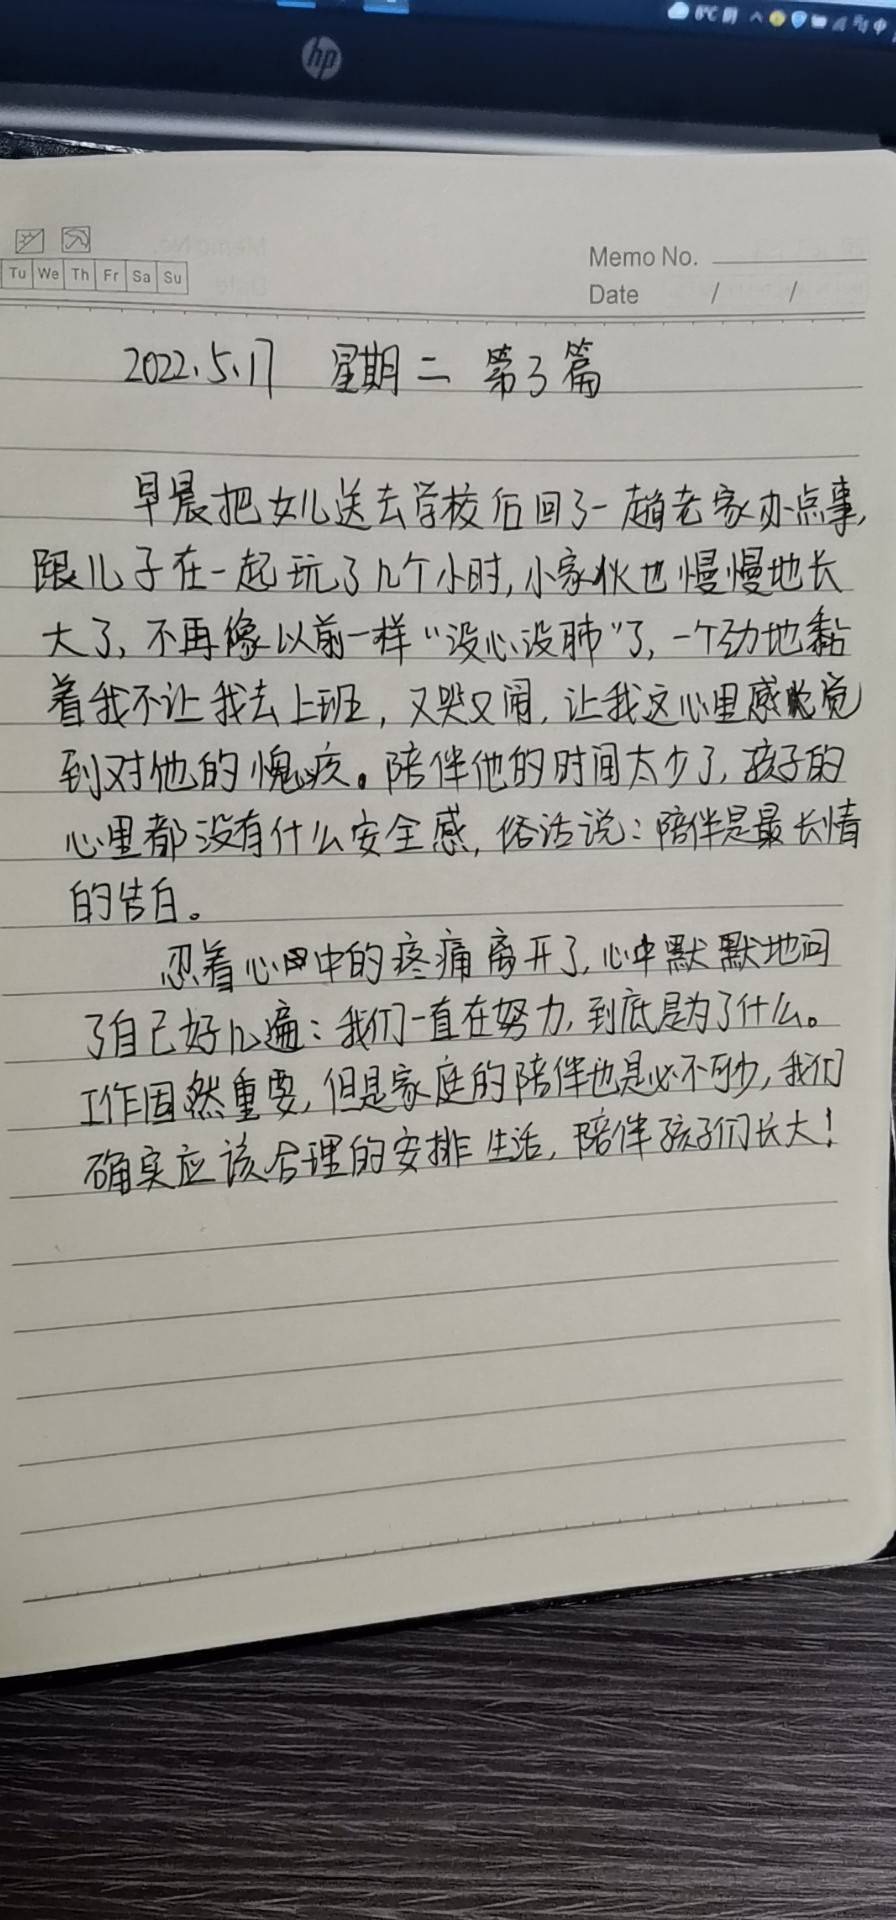 8℃ 阴
hp
Tu We Th Fr Sa Su
Memo No.
Date / /
2022.5.17 星期二 第3篇
早晨把女儿送去学校后回了一趟老家办点事,
跟儿子在一起玩了几个小时,小家伙也慢慢地长
大了,不再像以前一样“没心没肺”了,一个劲地黏
着我不让我去上班,又哭又闹,让我这心里感觉
到对他的愧疚。陪伴他的时间太少了,孩子的
心里都没有什么安全感,俗话说:陪伴是最长情
的告白。
忍着心中的疼痛离开了,心中默默地问
了自己好几遍:我们一直在努力,到底是为了什么。
工作固然重要,但是家庭的陪伴也是必不可少,我们
确实应该合理的安排生活,陪伴孩子们长大!